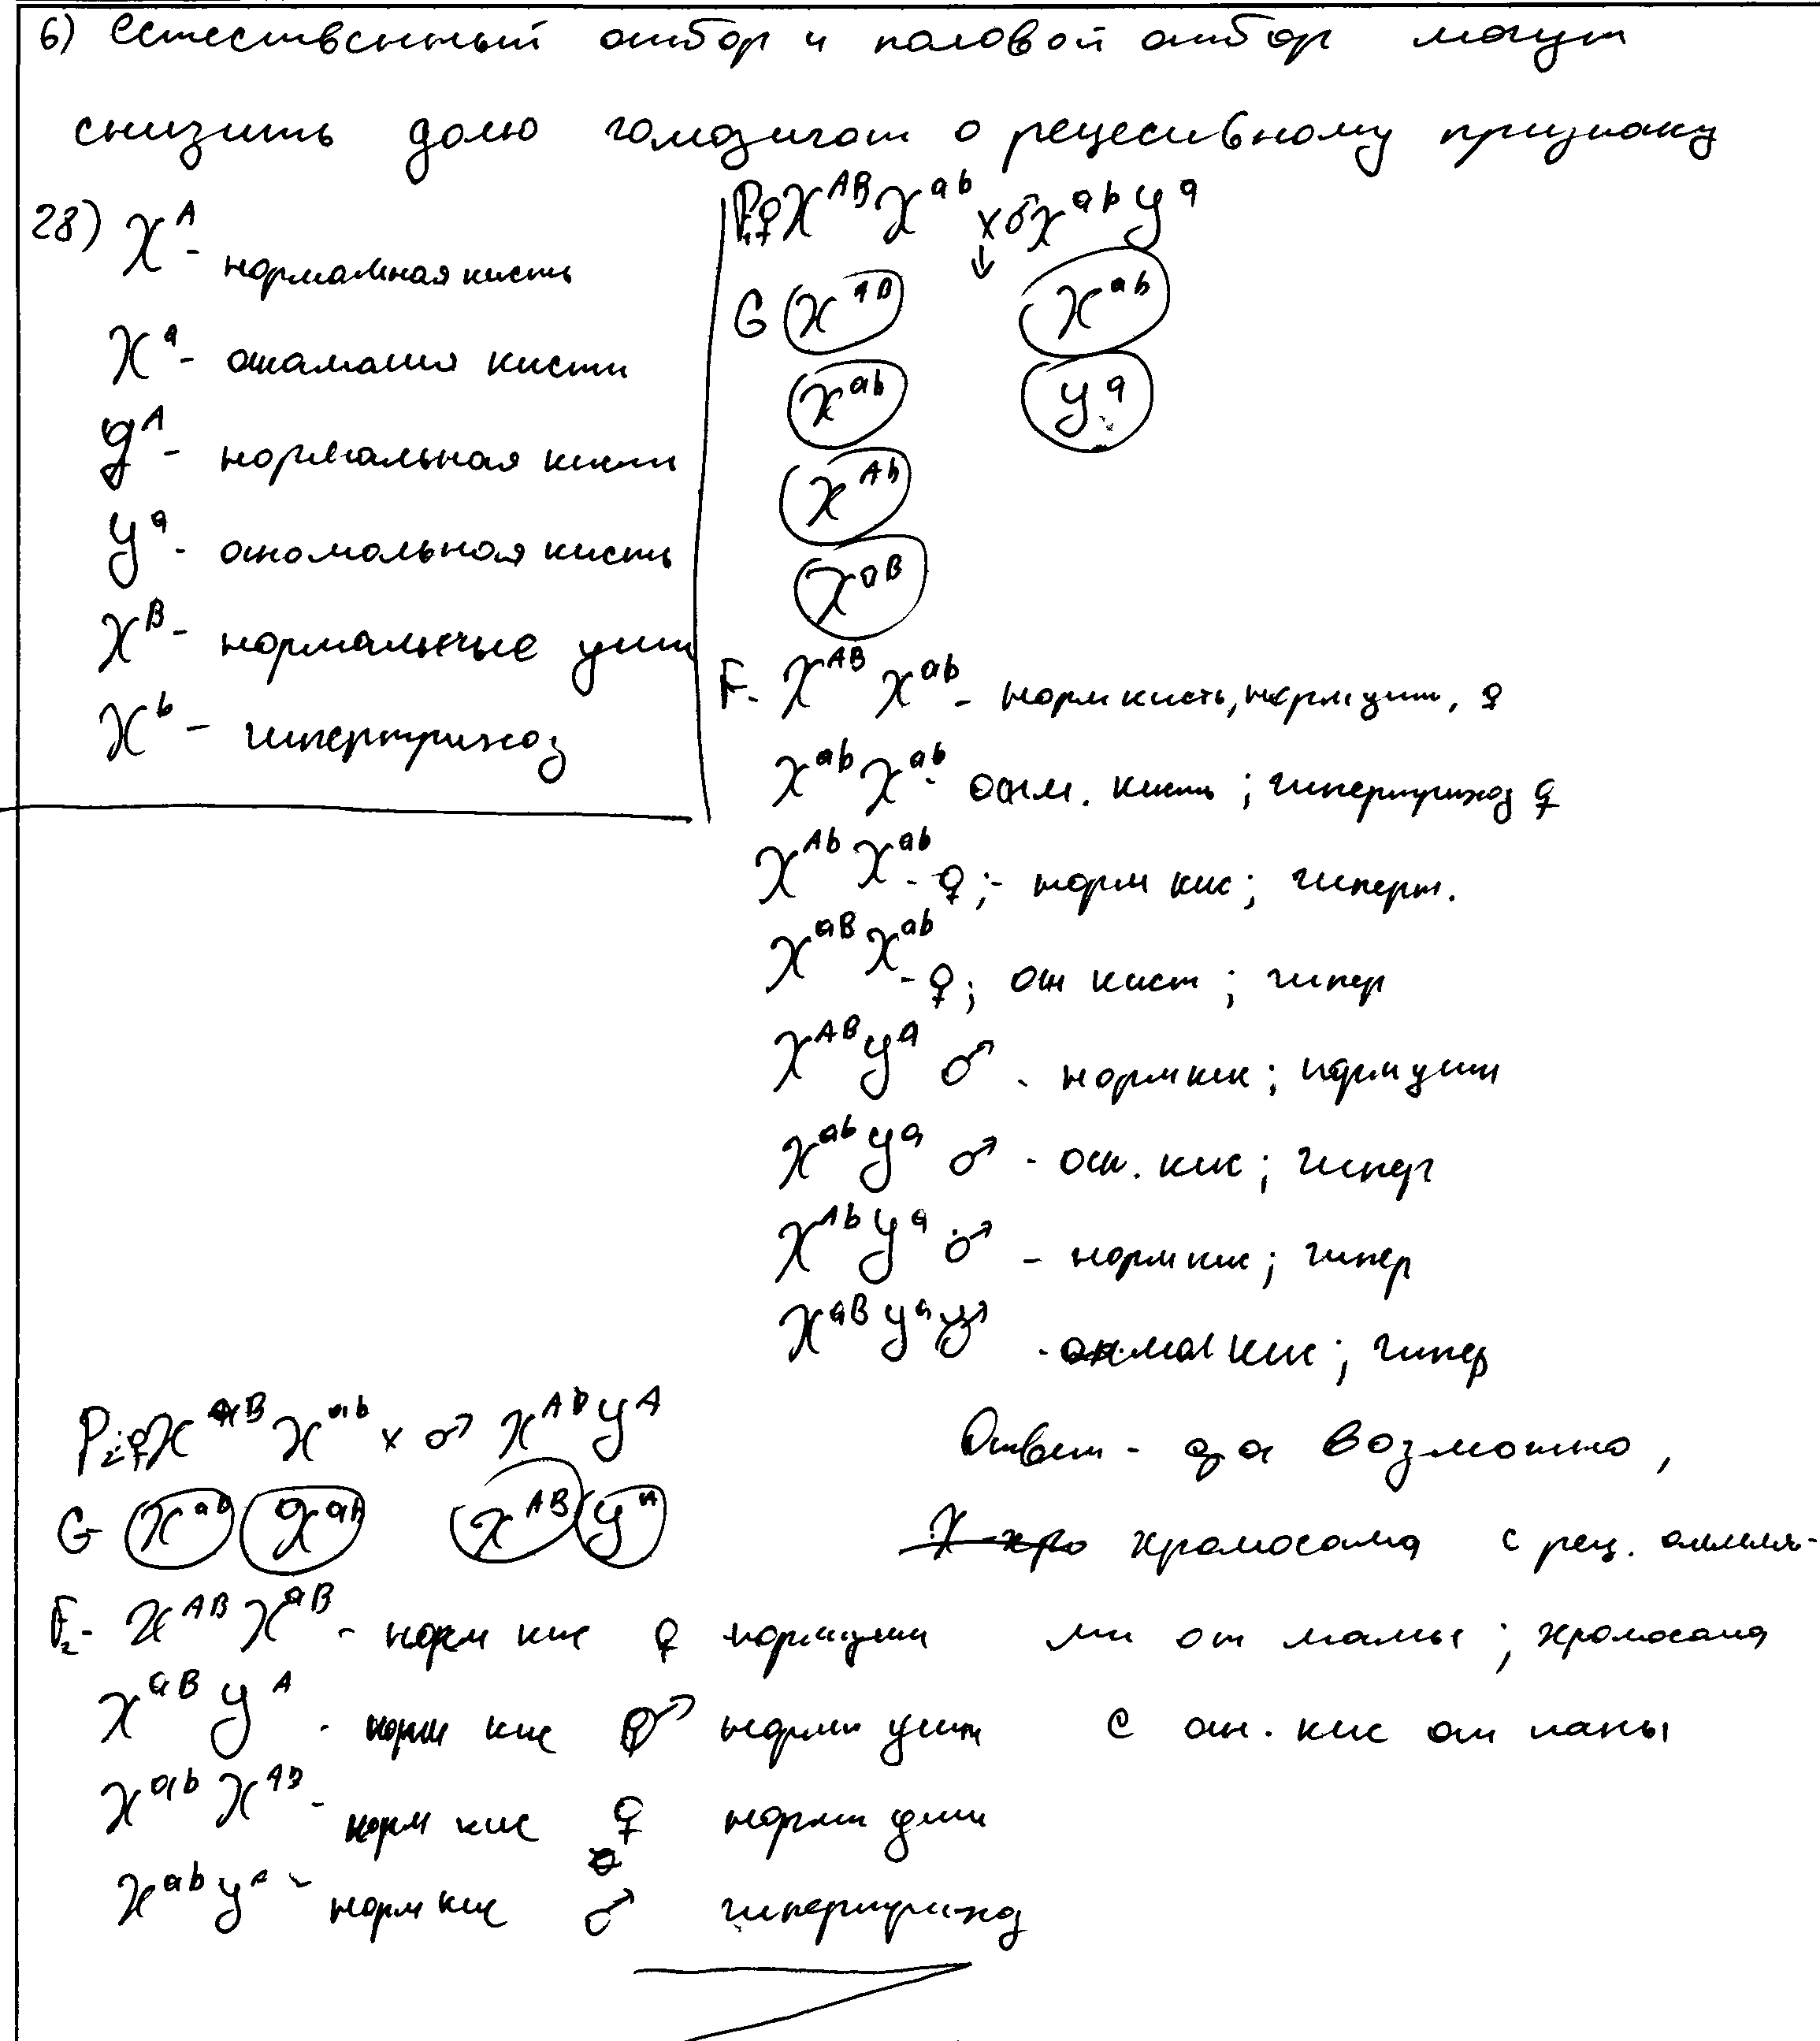 6) Естественный отбор и половой отбор могут
снизить долю гомозигот о рецесивному признаку
28) X^A - нормальная кисть
X^a - аномалия кисти
y^A - нормальная кисть
y^a - аномальная кисть
X^B - нормальные уши
X^b - гипертрихоз
P₁ ♀ X^AB X^ab × ♂ X^ab y^a
↓
G X^AB X^ab
X^ab y^a
X^Ab
X^aB
F₁ X^AB X^ab - норм кисть, норм уши, ♀
X^ab X^ab - аном. кисть ; гипертрихоз ♀
X^Ab X^ab - ♀ ;- норм кис ; гиперт.
X^aB X^ab - ♀ ; ан кист ; гипер
X^AB y^a ♂ - норм кис ; норм уши
X^ab y^a ♂ - ан. кис ; гипер
X^Ab y^a ♂ - норм кис ; гипер
X^aB y^a ♂ - кис ; гипер
P₂: ♀ X^aB X^ab × ♂ X^AB y^A
G X^aB X^ab X^AB y^A
F₂ - X^AB X^aB - норм кис ♀ норм уши
X^aB y^A - норм кис ♂ норм уши
X^ab X^AB - норм кис ♀ норм уши
X^ab y^A - норм кис ♂ гипертрихоз
Ответ - да возможно,
хромосома с рец. аллеля-
ми от мамы ; хромосома
с ан. кис от папы